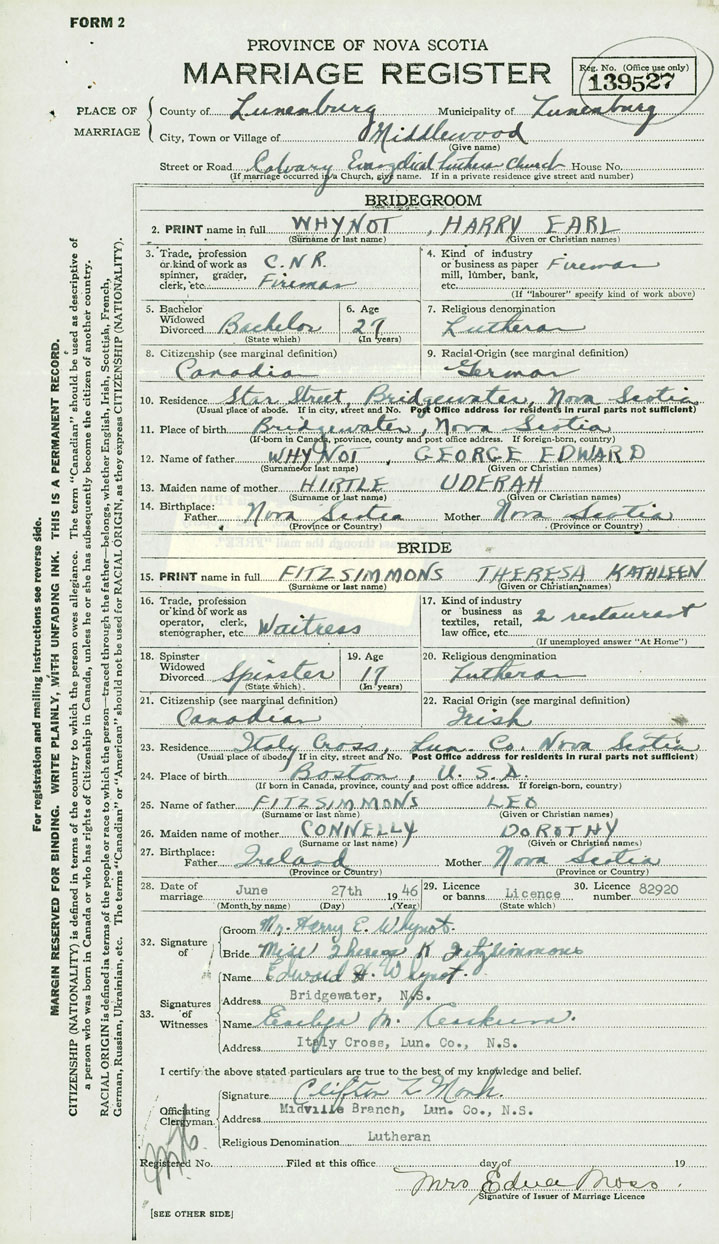 FORM 2
PROVINCE OF NOVA SCOTIA
MARRIAGE REGISTER
Reg. No. (Office use only)
139527
PLACE OF MARRIAGE
County of Lunenburg Municipality of Lunenburg
City, Town or Village of Middlewood
(Give name)
Street or Road Calvary Evangelical Lutheran Church House No.
(If marriage occurred in a Church, give name. If in a private residence give street and number)
BRIDEGROOM
2. PRINT name in full WHYNOT, HARRY EARL
(Surname or last name) (Given or Christian names)
3. Trade, profession or kind of work as spinner, grader, clerk, etc. C.N.R. Fireman
4. Kind of industry or business as paper mill, lumber, bank, etc. Fireman
(If "labourer" specify kind of work above)
5. Bachelor Widowed Divorced Bachelor (State which)
6. Age 27 (In years)
7. Religious denomination Lutheran
8. Citizenship (see marginal definition) Canadian
9. Racial-Origin (see marginal definition) German
10. Residence Star Street, Bridgewater, Nova Scotia
(Usual place of abode. If in city, street and No. Post Office address for residents in rural parts not sufficient)
11. Place of birth Bridgewater, Nova Scotia
(If born in Canada, province, county and post office address. If foreign-born, country)
12. Name of father WHYNOT, GEORGE EDWARD
(Surname or last name) (Given or Christian names)
13. Maiden name of mother HIRTLE UDERAH
(Surname or last name) (Given or Christian names)
14. Birthplace: Father Nova Scotia Mother Nova Scotia
(Province or Country) (Province or Country)
BRIDE
15. PRINT name in full FITZSIMMONS THERESA KATHLEEN
(Surname or last name) (Given or Christian names)
16. Trade, profession or kind of work as operator, clerk, stenographer, etc. Waitress
17. Kind of industry or business as textiles, retail, law office, etc. restaurant
(If unemployed answer "At Home")
18. Spinster Widowed Divorced Spinster (State which)
19. Age 17 (In years)
20. Religious denomination Lutheran
21. Citizenship (see marginal definition) Canadian
22. Racial Origin (see marginal definition) Irish
23. Residence Italy Cross, Lun. Co. Nova Scotia
(Usual place of abode. If in city, street and No. Post Office address for residents in rural parts not sufficient)
24. Place of birth Boston, U.S.A.
(If born in Canada, province, county and post office address. If foreign-born, country)
25. Name of father FITZSIMMONS LEO
(Surname or last name) (Given or Christian names)
26. Maiden name of mother CONNELLY DOROTHY
(Surname or last name) (Given or Christian names)
27. Birthplace: Father Ireland Mother Nova Scotia
(Province or Country) (Province or Country)
28. Date of marriage June 27th 1946
(Month by name) (Day) (Year)
29. Licence or banns Licence (State which)
30. Licence number 82920
32. Signature of
Groom Mr. Harry E. Whynot.
Bride Miss Theresa K Fitzsimmons
33. Signatures of Witnesses
Name Edward H. Whynot.
Address Bridgewater, N.S.
Name M.
Address Italy Cross, Lun. Co., N.S.
I certify the above stated particulars are true to the best of my knowledge and belief.
Officiating Clergyman.
Signature Clifton L Monk.
Address Midville Branch, Lun. Co., N.S.
Religious Denomination Lutheran
Registered No. Filed at this office day of 19
Mrs Edna Moss.
Signature of Issuer of Marriage Licence
[SEE OTHER SIDE]
For registration and mailing instructions see reverse side.
MARGIN RESERVED FOR BINDING. WRITE PLAINLY, WITH UNFADING INK. THIS IS A PERMANENT RECORD.
CITIZENSHIP (NATIONALITY) is defined in terms of the country to which the person owes allegiance. The term "Canadian" should be used as descriptive of
a person who was born in Canada or who has rights of Citizenship in Canada, unless he or she has subsequently become the citizen of another country.
RACIAL ORIGIN is defined in terms of the people or race to which the person—traced through the father—belongs, whether English, Irish, Scottish, French,
German, Russian, Ukrainian, etc. The terms "Canadian" or "American" should not be used for RACIAL ORIGIN, as they express CITIZENSHIP (NATIONALITY).